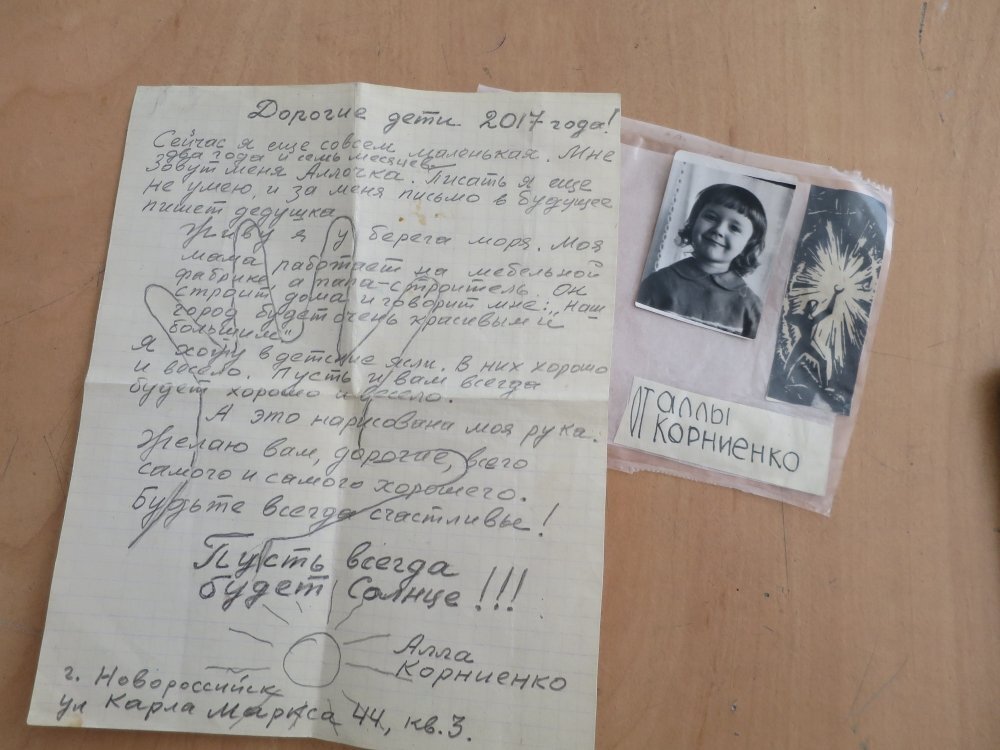 Дорогие дети 2017 года!
Сейчас я еще совсем маленькая. Мне
два года и семь месяцев
Зовут меня Аллочка. Писать я еще
не умею, и за меня письмо в будущее
пишет дедушка
Живу я у берега моря. Моя
мама работает на мебельной
фабрике, а папа-строитель. Он
строит дома и говорит мне: „Наш
город будет очень красивым и
большим"
Я хожу в детские ясли. В них хорошо
и весело. Пусть и вам всегда
будет хорошо и весело.
А это нарисована моя рука.
Желаю вам, дорогие, всего
самого и самого хорошего.
Будьте всегда счастливы!
Пусть всегда
будет Солнце!!!
Алла
Корниенко
г. Новороссийск
ул Карла Маркса 44, кв. 3.
от аллы
Корниенко